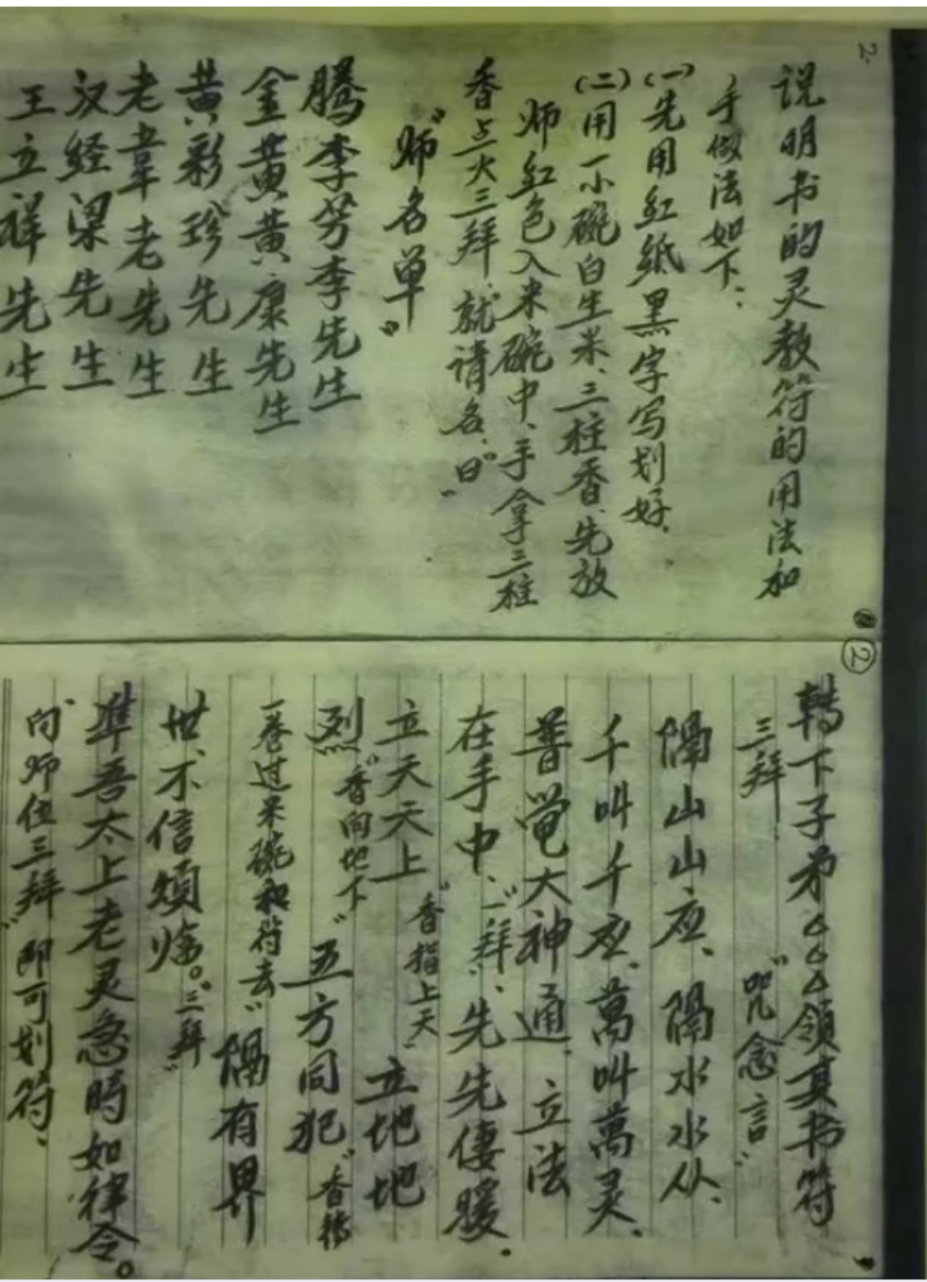 2.
说明书的灵教符的用法和
手做法如下：
(一)先用红纸黑字写划好、
(二)用一小碗白生米、三柱香、先放
师红色入米碗中、手拿三柱
香点火三拜、就请名、曰"
"师名单"
腾李芳李先生
金黄黄康先生
黄彩珍先生
老韋老先生
汉经梁先生
王立祥先生
②
轉下子弟△△△領其书符
三拜、"咒念言"
隔山山应、隔水水从、
千叫千应、萬叫萬灵、
普奄大神通、立法
在手中、"一拜"、先先
立天天上"香指上天"立地地
烈"香向地下"五方同犯"香
一卷过米碗和符去"隔有界
世、不信須临。"三拜"
準吾太上老灵急時如律令。
向师位三拜"即可划符、